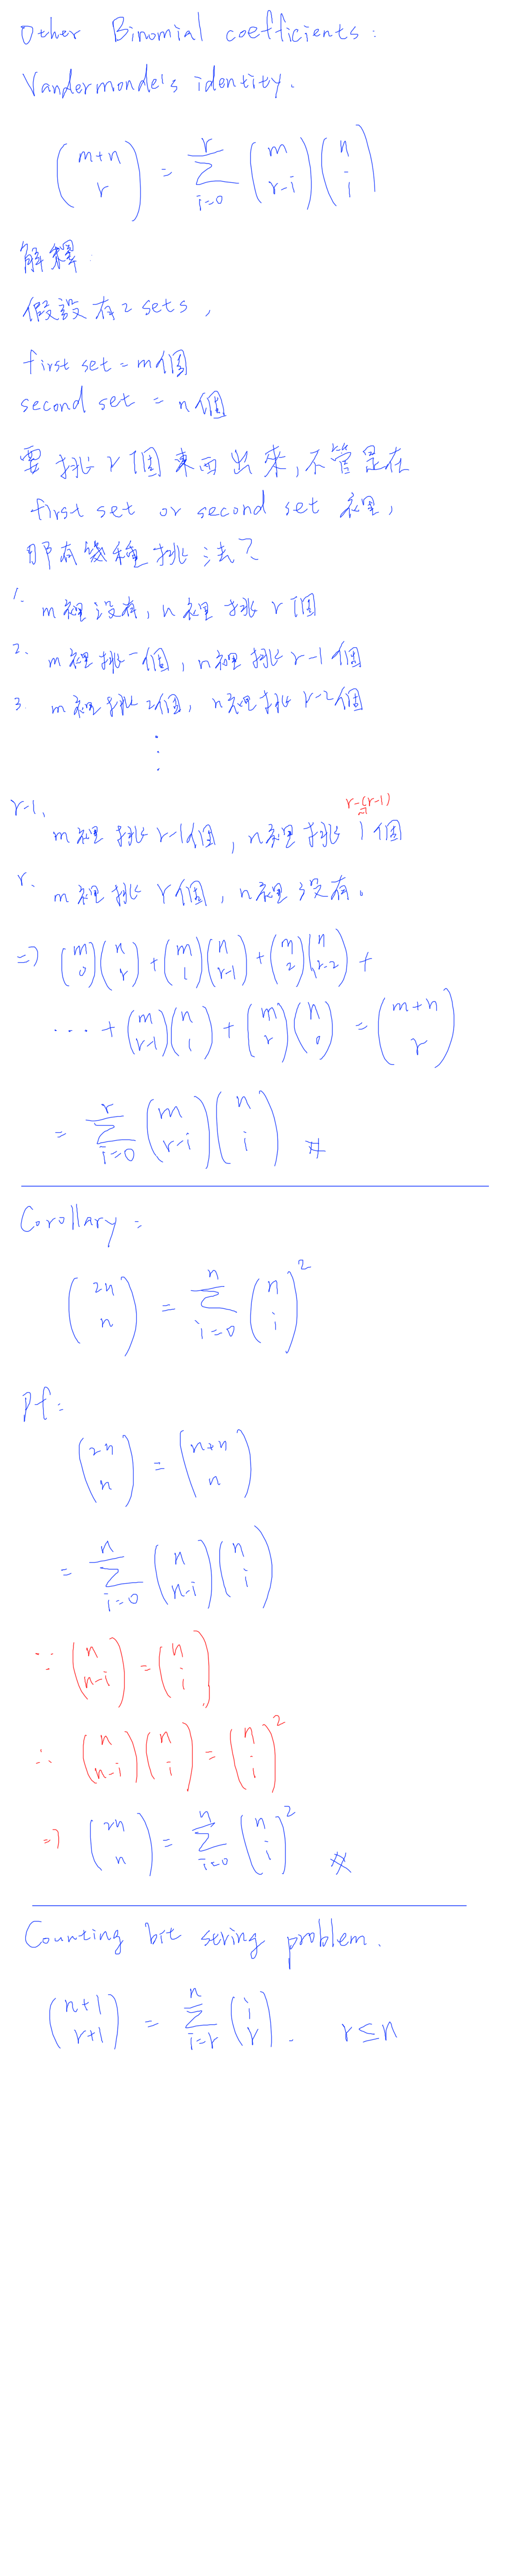 Other Binomial coefficients:
Vandermonde's identity.
\binom{m+n}{r} = \sum_{i=0}^{r} \binom{m}{r-i} \binom{n}{i}
解釋:
假設有2 sets,
first set = m個
second set = n個
要挑r個東西出來,不管是在
first set or second set 裡,
那有幾種挑法?
1. m裡沒有, n裡挑r個
2. m裡挑一個, n裡挑r-1個
3. m裡挑2個, n裡挑r-2個
⋮
r-(r-1)
r-1、 m裡挑r-1個, n裡挑1個
r、 m裡挑r個, n裡沒有。
=> \binom{m}{0}\binom{n}{r} + \binom{m}{1}\binom{n}{r-1} + \binom{m}{2}\binom{n}{r-2} +
... + \binom{m}{r-1}\binom{n}{1} + \binom{m}{r}\binom{n}{0} = \binom{m+n}{r}
= \sum_{i=0}^{r} \binom{m}{r-i} \binom{n}{i} #
Corollary:
\binom{2n}{n} = \sum_{i=0}^{n} \binom{n}{i}^2
Pf:
\binom{2n}{n} = \binom{n+n}{n}
= \sum_{i=0}^{n} \binom{n}{n-i} \binom{n}{i}
∵ \binom{n}{n-i} = \binom{n}{i}
∴ \binom{n}{n-i} \binom{n}{i} = \binom{n}{i}^2
=> \binom{2n}{n} = \sum_{i=0}^{n} \binom{n}{i}^2 #
Counting bit string problem.
\binom{n+1}{r+1} = \sum_{i=r}^{n} \binom{i}{r}. r≤n